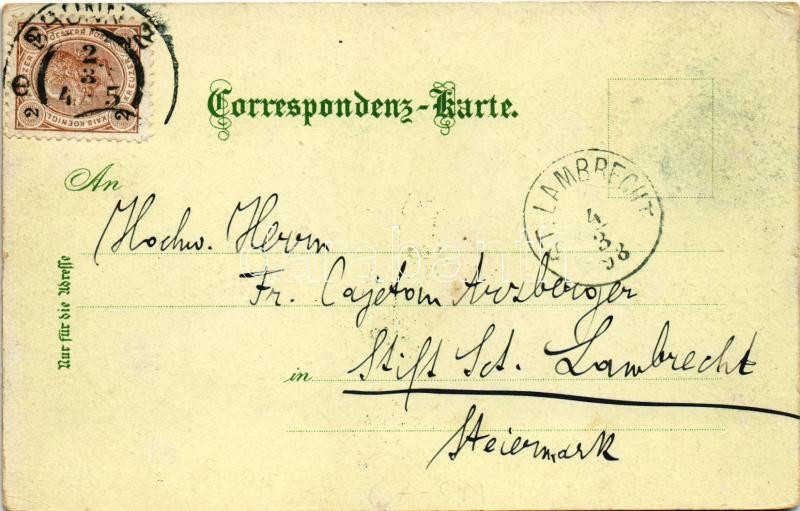 BRÜNN
2
3
4 5
2 KREUZER
OESTERR. POST
KAIS. KOENIGL.
2
Correspondenz-Karte.
An
Nur für die Adresse
ST. LAMBRECHT
4
3
98
Hochw. Herrn
Fr. Cajetan Arzberger
in Stift Sct. Lambrecht
Steiermark
darabanth